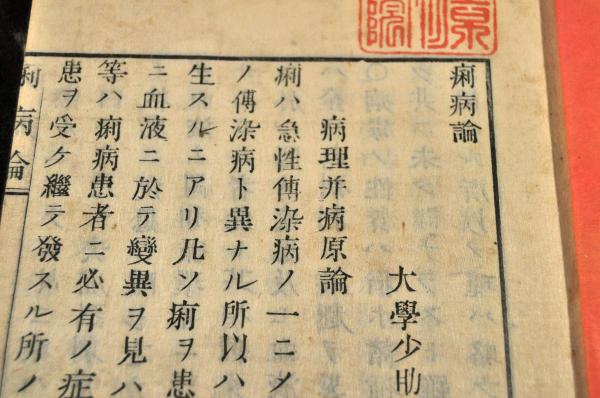 痢病論
大學少助
病理并病原論
痢ハ急性傳染病ノ一ニメ
ノ傳染病ト異ナル所以ハ
生スルニアリ凡ソ痢ヲ患
ニ血液ニ於テ變異ヲ見ハ
等ハ痢病患者ニ必有ノ症
患ヲ受ケ繼テ發スル所ノ
痢病論